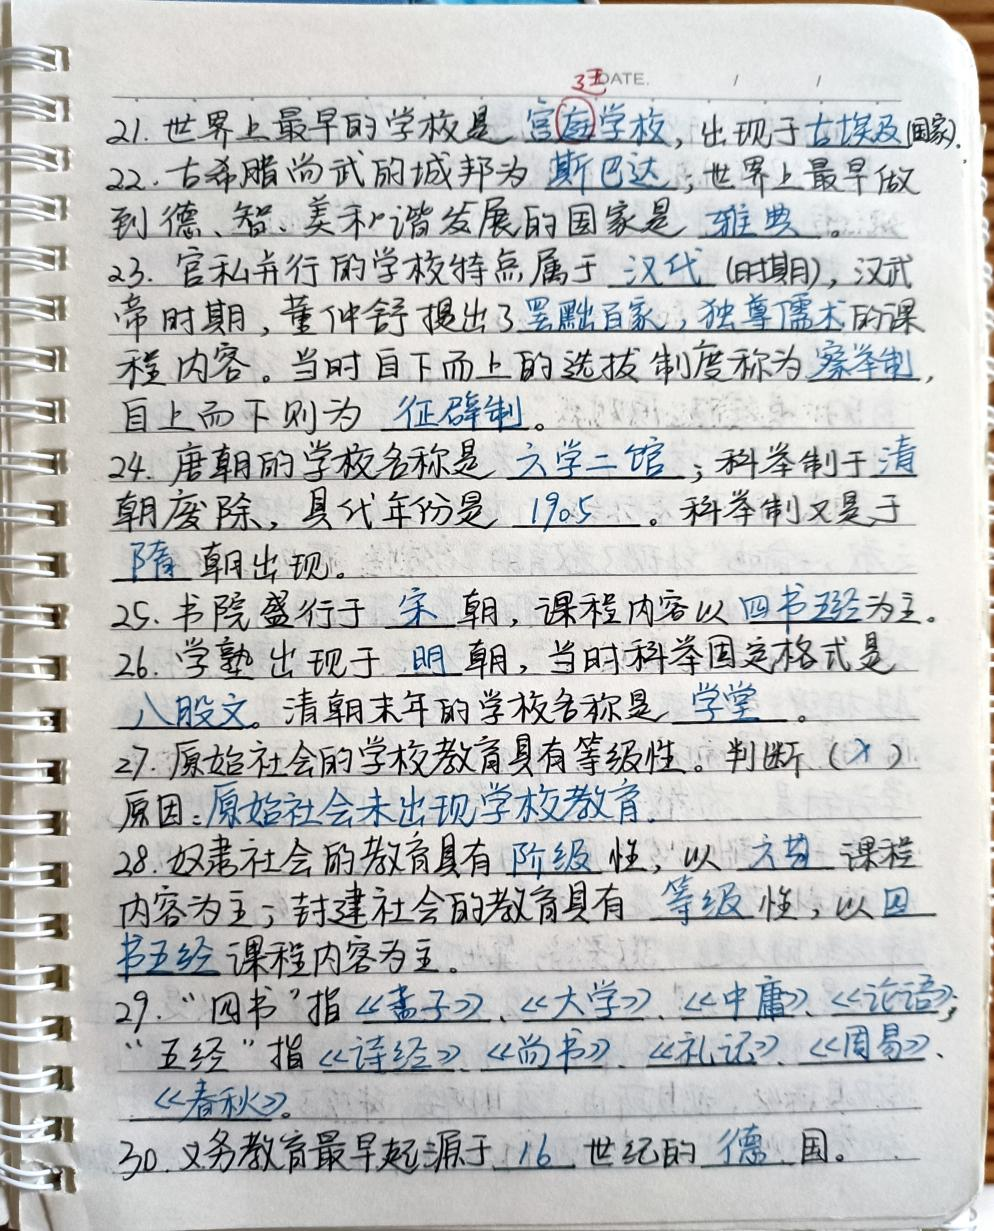 DATE. / /
21. 世界上最早的学校是 宫庭学校, 出现于古埃及(国家).
22. 古希腊尚武的城邦为 斯巴达; 世界上最早做
到德、智、美和谐发展的国家是 雅典 。
23. 官私并行的学校特点属于 汉代 (时期), 汉武
帝时期, 董仲舒提出了罢黜百家, 独尊儒术的课
程内容。当时自下而上的选拔制度称为察举制,
自上而下则为 征辟制。
24. 唐朝的学校名称是 六学二馆 ; 科举制于清
朝废除, 具代年份是 1905 。科举制又是于
隋 朝出现。
25. 书院盛行于 宋 朝, 课程内容以 四书五经为主。
26. 学塾出现于 明 朝, 当时科举固定格式是
八股文。清朝末年的学校名称是 学堂 。
27. 原始社会的学校教育具有等级性。判断 (×)
原因: 原始社会未出现学校教育.
28. 奴隶社会的教育具有 阶级 性, 以 六艺 课程
内容为主; 封建社会的教育具有 等级 性, 以四
书五经课程内容为主。
29. “四书”指《孟子》、《大学》、《中庸》、《论语》;
“五经”指《诗经》、《尚书》、《礼记》、《周易》、
《春秋》。
30. 义务教育最早起源于 16 世纪的 德 国。